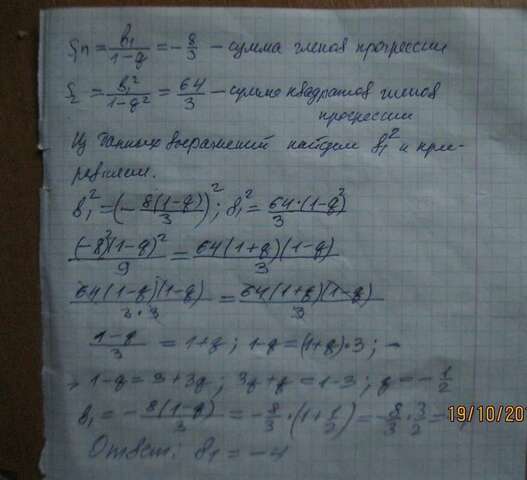 Sn = b₁/(1-q) = -8/3 - сумма членов прогрессии
S₂ = b₁²/(1-q²) = 64/3 - сумма квадратов членов
прогрессии
Из данных выражений найдем b₁² и прир-
равняем.
b₁² = (-8(1-q)/3)²; b₁² = 64·(1-q²)/3
(-8)²(1-q)²/9 = 64(1+q)(1-q)/3
64(1-q)(1-q)/3·3 = 64(1+q)(1-q)/3
(1-q)/3 = 1+q; 1-q = (1+q)·3; -
> 1-q = 3+3q; 3q+q = 1-3; q = -1/2
b₁ = -8(1-q)/3 = -8/3·(1+1/2) = -8/3·3/2 =
19/10/20
Ответ: b₁ = -4